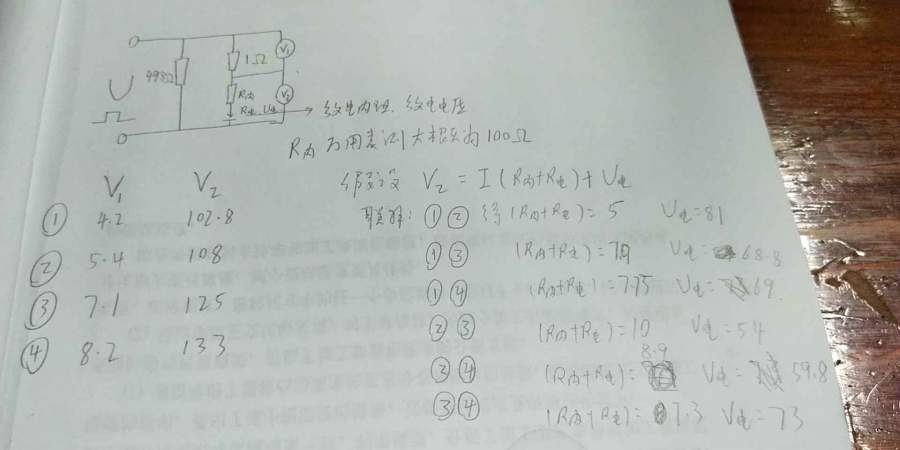 498Ω
1Ω
V₁
R内
V₂
R电 U电 → 放电内阻、放电电压
R内 万用表测大概为100Ω
V₁ V₂
① 4.2 102.8
② 5.4 108
③ 7.1 125
④ 8.2 133
假设 V₂ = I (R内+R电) + U电
联解: ①② 得 (R内+R电) = 5 U电=81
①③ (R内+R电) = U电= 68.8
①④ (R内+R电) = 7.75 U电= 69
②③ (R内+R电) = 10 U电= 54
8.9
③④ (R内+R电) = U电= 59.8
③④ (R内+R电) = 7.3 U电= 73